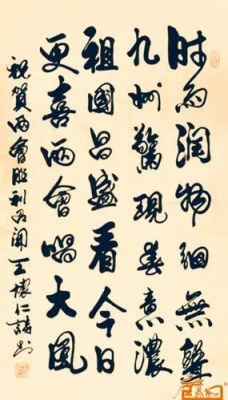 时雨润物細無聲
九州驚現春意濃
祖國昌盛看今日
更喜兩會唱大風
祝賀兩會勝利召開 王懷仁詩书